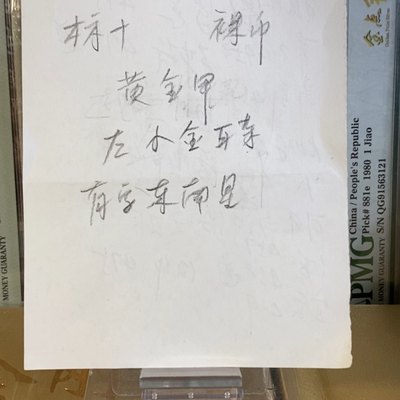 本标十 裸印
黄金甲
左 金耳
东南星
China / People's Republic
Pick# 881e 1980 1 Jiao
S/N QG91563121
PMG
MONEY GUARANTY
MONEY GUARANTY